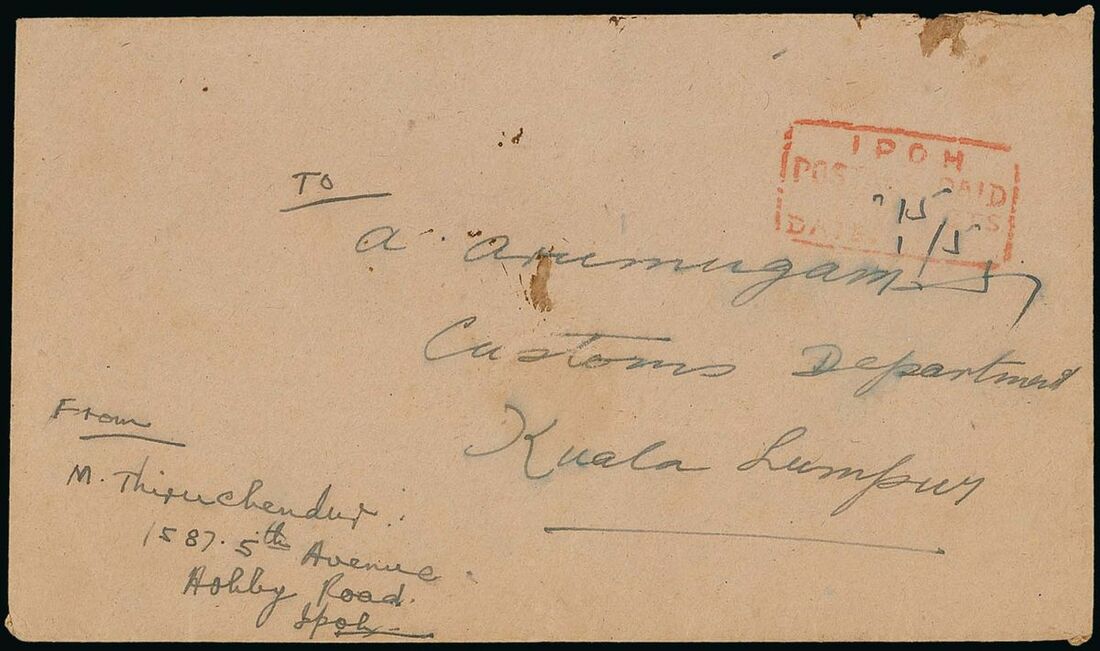 IPOH
PAID
TO
A. Arumugam
Customs Department
Kuala Lumpur
From
M. Thiruchendur.
1587. 5th Avenue
Ashby Road.
Ipoh